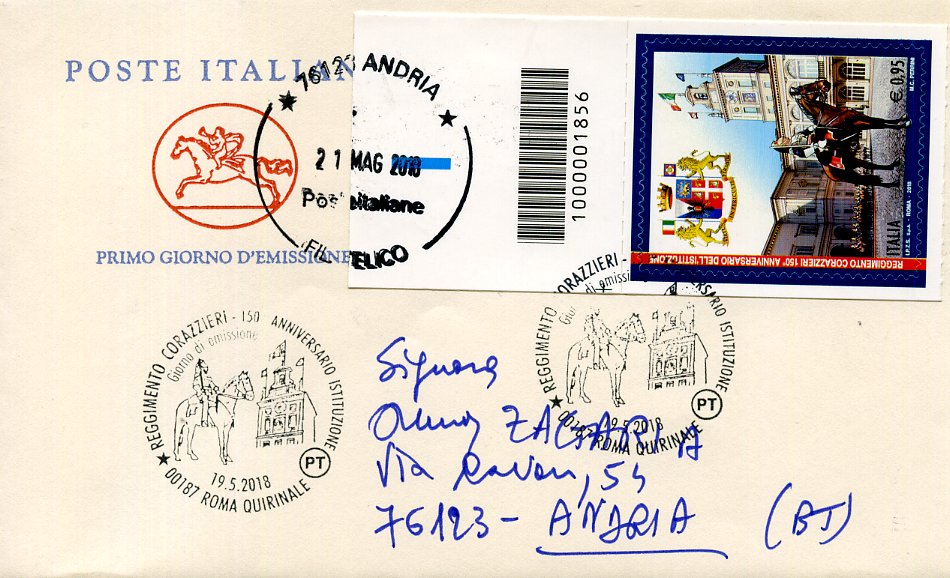 POSTE ITALIAN
PRIMO GIORNO D'EMISSIONE
76123 ANDRIA
21 MAG 2018
Posteitaliane
FIL TELICO
1000001856
€ 0,95
M.C. PERRINI
ITALIA
I.P.Z.S. S.p.A. - ROMA - 2018
REGGIMENTO CORAZZIERI 150° ANNIVERSARIO DELL'ISTITUZIONE
REGGIMENTO CORAZZIERI - 150 ANNIVERSARIO ISTITUZIONE
Giorno di emissione
19.5.2018
00187 ROMA QUIRINALE
PT
REGGIMENTO CORAZZIERI - ERSARIO ISTITUZIONE
Gior no di emissi
19.5.2018
00187 ROMA QUIRINALE
PT
Signora
ZACCARIA
Via
76123 - ANDRIA (BT)